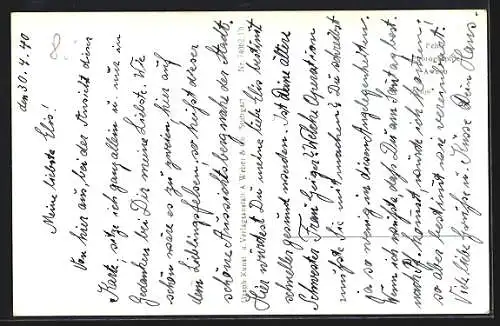 den 30.4.40
Meine liebste Elis!
Von hier aus, bei der Ansicht dieser
Karte, sitze ich ganz allein u. nur in
Gedanken bei Dir meine Liebste. Wie
schön wäre es zu zweien hier auf
dem Lieblingsfelsen so heißt dieser
schöne Aussichtsberg nahe der Stadt.
Hier würdest Du meine liebe Elis bestimmt
schneller gesund werden. Ist Deine ältere
Schwester Frau Geiger? Welche Operation
mußte sie mitmachen? Du schreibst
ja so wenig in diesen Angelegenheiten.
Wenn ich wüßte daß Du am Sonntag
möglich kommst würde ich kommen.
so aber bestimmt wie vereinbart!
Viele liebe Grüße u. Küsse Dein Hans.
Graph. Kunst- u. Verlagsanstalt A. Weber & Co., Stuttgart